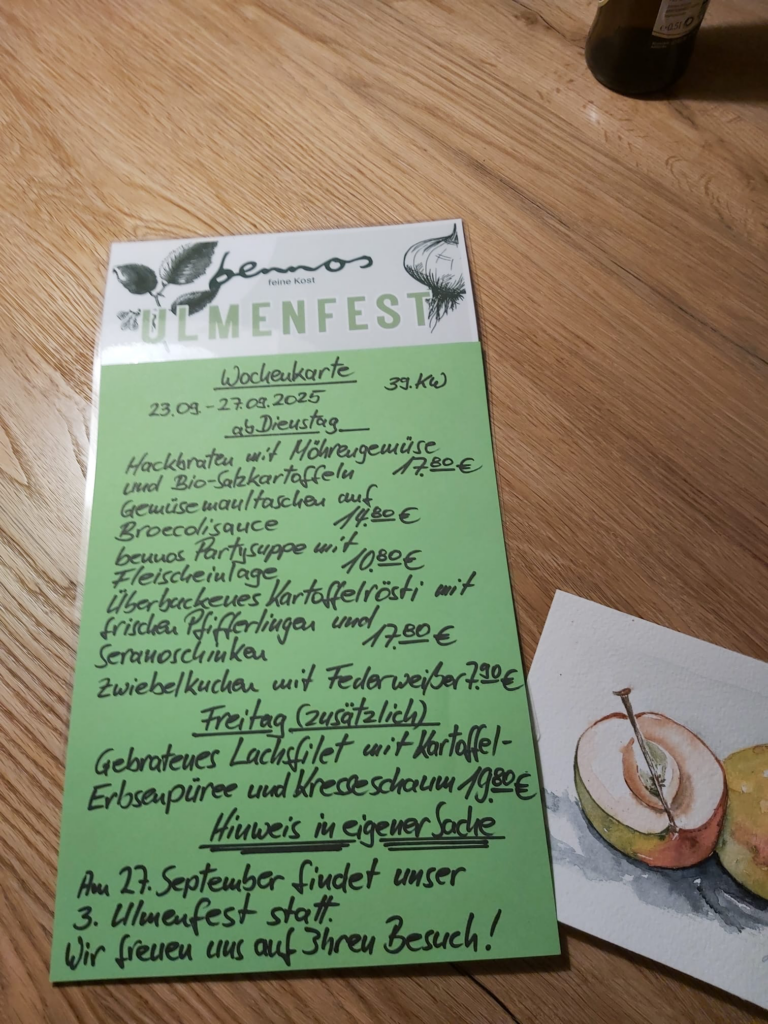 bennos
feine Kost
ULMENFEST
Wochenkarte
39. KW
23.09. - 27.09.2025
ab Dienstag
Hackbraten mit Möhrengemüse
und Bio-Salzkartoffeln 17.80 €
Gemüsemaultaschen auf
Broccolisauce 14.80 €
bennos Partysuppe mit
Fleischeinlage 10.80 €
Überbackenes Kartoffelrösti mit
frischen Pfifferlingen und
Seranoschinken 17.80 €
Zwiebelkuchen mit Federweißer 7.90 €
Freitag (zusätzlich)
Gebratenes Lachsfilet mit Kartoffel-
Erbsenpüree und Kresseschaum 19.80 €
Hinweis in eigener Sache
Am 27. September findet unser
3. Ulmenfest statt.
Wir freuen uns auf Ihren Besuch!